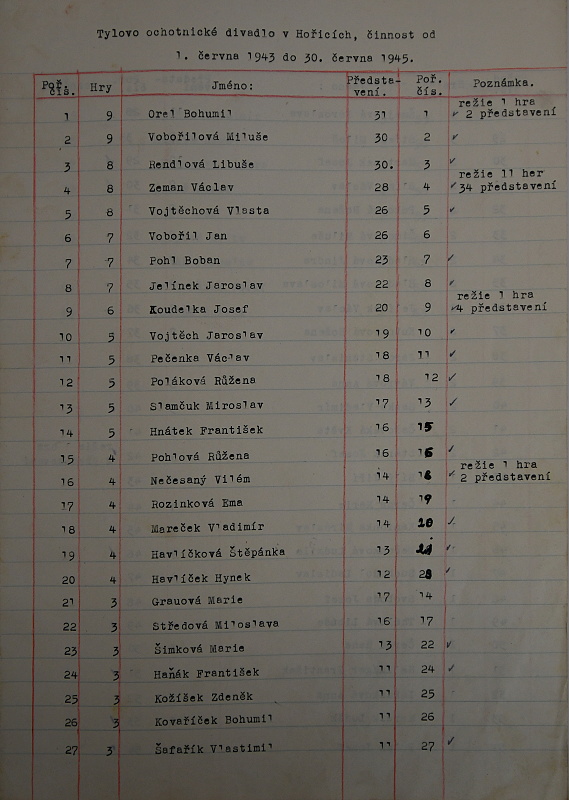 Tylovo ochotnické divadlo v Hořicích, činnost od
1. června 1943 do 30. června 1945.
Poř. čís. Hry Jméno: Představení. Poř. čís. Poznámka.
režie 1 hra
1 9 Orel Bohumil 31 1 ✓ 2 představení
2 9 Vobořilová Miluše 30 2 ✓
3 8 Rendlová Libuše 30. 3 ✓
režie 11 her
4 8 Zeman Václav 28 4 ✓ 34 představení
5 8 Vojtěchová Vlasta 26 5 ✓
6 7 Vobořil Jan 26 6
7 7 Pohl Boban 23 7 ✓
8 7 Jelínek Jaroslav 22 8 ✓
režie 1 hra
9 6 Koudelka Josef 20 9 ✓ 4 představení
10 5 Vojtěch Jaroslav 19 10 ✓
11 5 Pečenka Václav 18 11 ✓
12 5 Poláková Růžena 18 12 ✓
13 5 Slamčuk Miroslav 17 13 ✓
14 5 Hnátek František 16 15
15 4 Pohlová Růžena 16 16 ✓
režie 1 hra
16 4 Nečesaný Vilém 14 18 ✓ 2 představení
17 4 Rozinková Ema 14 19
18 4 Mareček Vladimír 14 20 ✓
19 4 Havlíčková Štěpánka 13 21 ✓
20 4 Havlíček Hynek 12 23 ✓
21 3 Grauová Marie 17 14
22 3 Středová Miloslava 16 17
23 3 Šimková Marie 13 22 ✓
24 3 Haňák František 11 24 ✓
25 3 Kožíšek Zdeněk 11 25
26 3 Kovaříček Bohumil 11 26
27 3 Šafařík Vlastimil 11 27 ✓